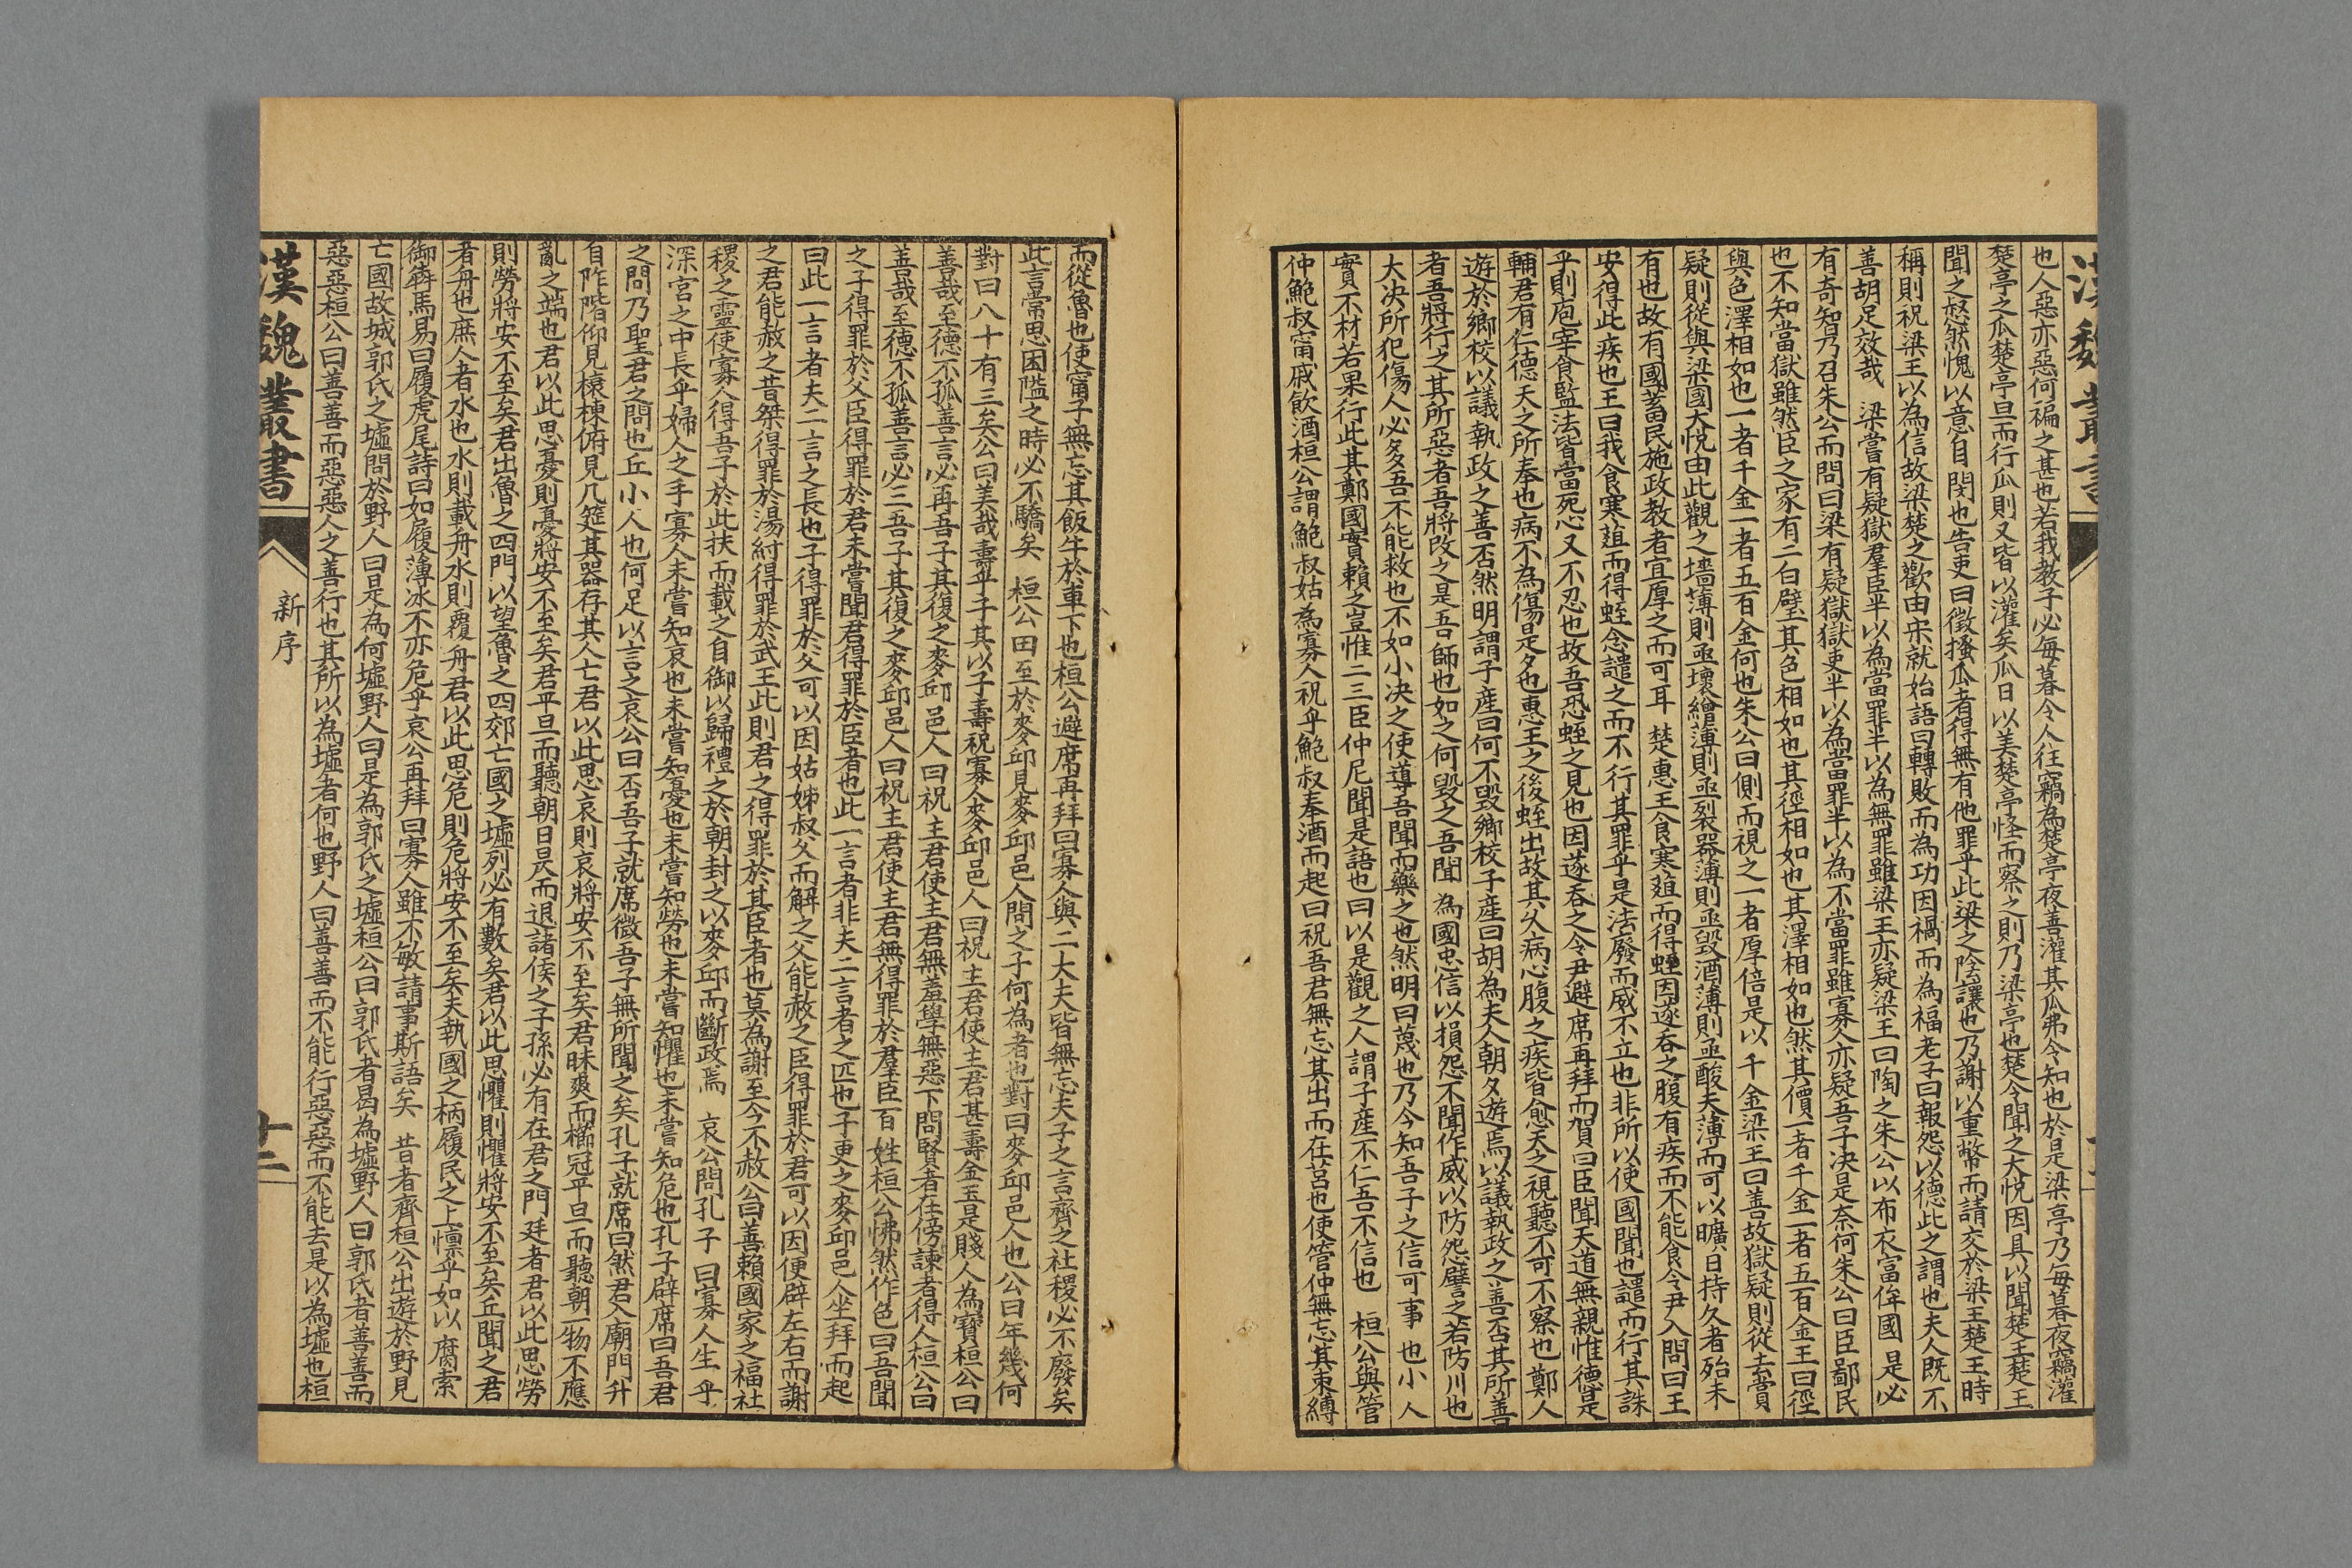 也人惡亦惡何褊之甚也若我教子必每暮令人往竊為楚亭夜善灌其瓜弗令知也於是梁亭乃每暮夜竊灌
楚亭之瓜楚亭旦而行瓜則又皆以灌矣瓜日以美楚亭怪而察之則乃梁亭也楚令聞之大悦因具以聞楚王楚王
聞之惄然愧以意自閔也告吏曰徵搔瓜者得無有他罪乎此梁之陰讓也乃謝以重幣而請交於梁王楚王時
稱則祝梁王以為信故梁楚之歡由宋就始語曰轉敗而為功因禍而為福老子曰報怨以德此之謂也夫人既不
善胡足效哉　梁嘗有疑獄羣臣半以為當罪半以為無罪雖梁王亦疑梁王曰陶之朱公以布衣富侔國是必
有奇知乃召朱公而問曰梁有疑獄獄吏半以為當罪半以為不當罪雖寡人亦疑吾子决是奈何朱公曰臣鄙民
也不知當獄雖然臣之家有二白璧其色相如也其徑相如也其澤相如也然其價一者千金一者五百金王曰徑
與色澤相如也一者千金一者五百金何也朱公曰側而視之一者厚倍是以千金梁王曰善故獄疑則從去賞
疑則從與梁國大悦由此觀之墻薄則亟壞繒薄則亟裂器薄則亟毁酒薄則亟酸夫薄而可以曠日持久者殆未
有也故有國蓄民施政教者宜厚之而可耳　楚惠王食寒葅而得蛭因遂吞之腹有疾而不能食令尹入問曰王
安得此疾也王曰我食寒葅而得蛭念譴之而不行其罪乎是法廢而威不立也非所以使國聞也譴而行其誅
乎則庖宰食監法皆當死心又不忍也故吾恐蛭之見也因遂吞之令尹避席再拜而賀曰臣聞天道無親惟德是
輔君有仁德天之所奉也病不為傷是夕也惠王之後蛭出故其久病心腹之疾皆愈天之視聽不可不察也　鄭人
遊於鄉校以議執政之善否然明謂子産曰何不毁鄉校子産曰胡為夫人朝夕遊焉以議執政之善否其所善
者吾將行之其所惡者吾將改之是吾師也如之何毁之吾聞為國忠信以損怨不聞作威以防怨譬之若防川也
大决所犯傷人必多吾不能救也不如小决之使導吾聞而藥之也然明曰蔑也乃今知吾子之信可事也小人
實不材若果行此其鄭國實賴之豈惟二三臣仲尼聞是語也曰以是觀之人謂子産不仁吾不信也　桓公與管
仲鮑叔甯戚飲酒桓公謂鮑叔姑為寡人祝乎鮑叔奉酒而起曰祝吾君無忘其出而在莒也使管仲無忘其束縛
而從魯也使甯子無忘其飯牛於車下也桓公避席再拜曰寡人與二大夫皆無忘夫子之言齊之社稷必不廢矣
此言常思困隘之時必不驕矣　桓公田至於麥邱見麥邱邑人問之子何為者也對曰麥邱邑人也公曰年幾何
對曰八十有三矣公曰美哉壽乎子其以子壽祝寡人麥邱邑人曰祝主君使主君甚壽金玉是賤人為寶桓公曰
善哉至德不孤善言必再吾子其復之麥邱邑人曰祝主君使主君無羞學無惡下問賢者在傍諫者得人桓公曰
善哉至德不孤善言必三吾子其復之麥邱邑人曰祝主君使主君無得罪於羣臣百姓桓公怫然作色曰吾聞
之子得罪於父臣得罪於君未嘗聞君得罪於臣者也此一言者非夫二言者之匹也子更之麥邱邑人坐拜而起
曰此一言者夫二言之長也子得罪於父可以因姑姊叔父而解之父能赦之臣得罪於君可以因便辟左右而謝
之君能赦之昔桀得罪於湯紂得罪於武王此則君之得罪於其臣者也莫為謝至今不赦公曰善賴國家之福社
稷之靈使寡人得吾子於此扶而載之自御以歸禮之於朝封之以麥邱而斷政焉　哀公問孔子曰寡人生乎
深宮之中長乎婦人之手寡人未嘗知哀也未嘗知憂也未嘗知勞也未嘗知懼也未嘗知危也孔子辟席曰吾君
之問乃聖君之問也丘小人也何足以言之哀公曰否吾子就席微吾子無所聞之矣孔子就席曰然君入廟門升
自阼階仰見榱棟俯見几筵其器存其人亡君以此思哀則哀將安不至矣君昧爽而櫛冠平旦而聽朝一物不應
亂之端也君以此思憂則憂將安不至矣君平旦而聽朝日昃而退諸侯之子孫必有在君之門廷者君以此思勞
則勞將安不至矣君出魯之四門以望魯之四郊亡國之墟列必有數矣君以此思懼則懼將安不至矣丘聞之君
者舟也庶人者水也水則載舟水則覆舟君以此思危則危將安不至矣夫執國之柄履民之上懔乎如以腐索
御犇馬易曰履虎尾詩曰如履薄冰不亦危乎哀公再拜曰寡人雖不敏請事斯語矣　昔者齊桓公出遊於野見
亡國故城郭氏之墟問於野人曰是為何墟野人曰是為郭氏之墟桓公曰郭氏者曷為墟野人曰郭氏者善善而
惡惡桓公曰善善而惡惡人之善行也其所以為墟者何也野人曰善善而不能行惡惡而不能去是以為墟也桓
漢魏叢書
新序
十二